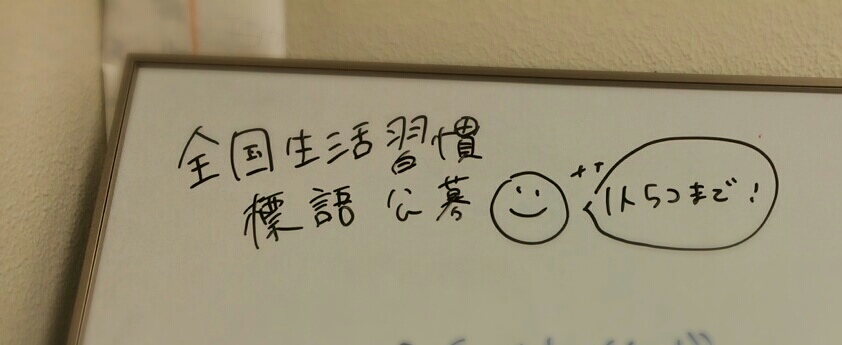 全国生活習慣
標語公募
1人5つまで!